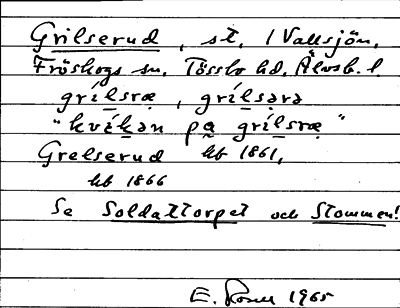 Grilserud, st, / Vallsjön,
Fröskogs sn. Tössbo hd. Älvsb. l.
grílsræ, grílsərə
"kvíkən på grílsræ"
Grelserud kb 1861,
kb 1866
Se Soldattorpet och Stommen!
E. 1965